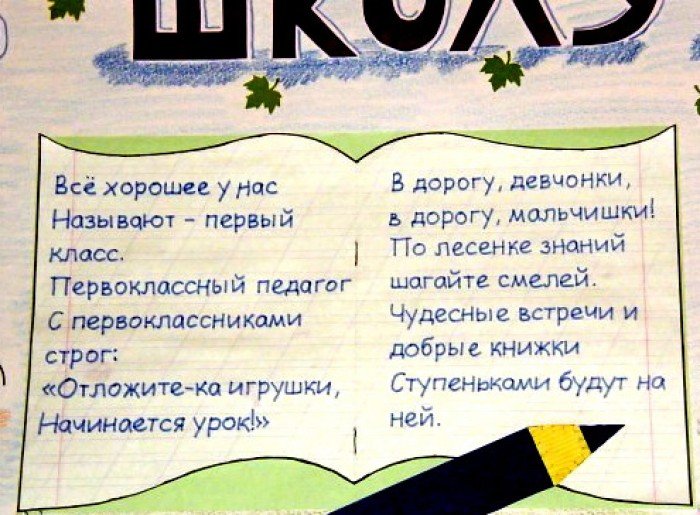 ШКОЛУ
Всё хорошее у нас
Называют – первый
класс.
Первоклассный педагог
С первоклассниками
строг:
«Отложите-ка игрушки,
Начинается урок!»
В дорогу, девчонки,
в дорогу, мальчишки!
По лесенке знаний
шагайте смелей.
Чудесные встречи и
добрые книжки
Ступеньками будут на
ней.